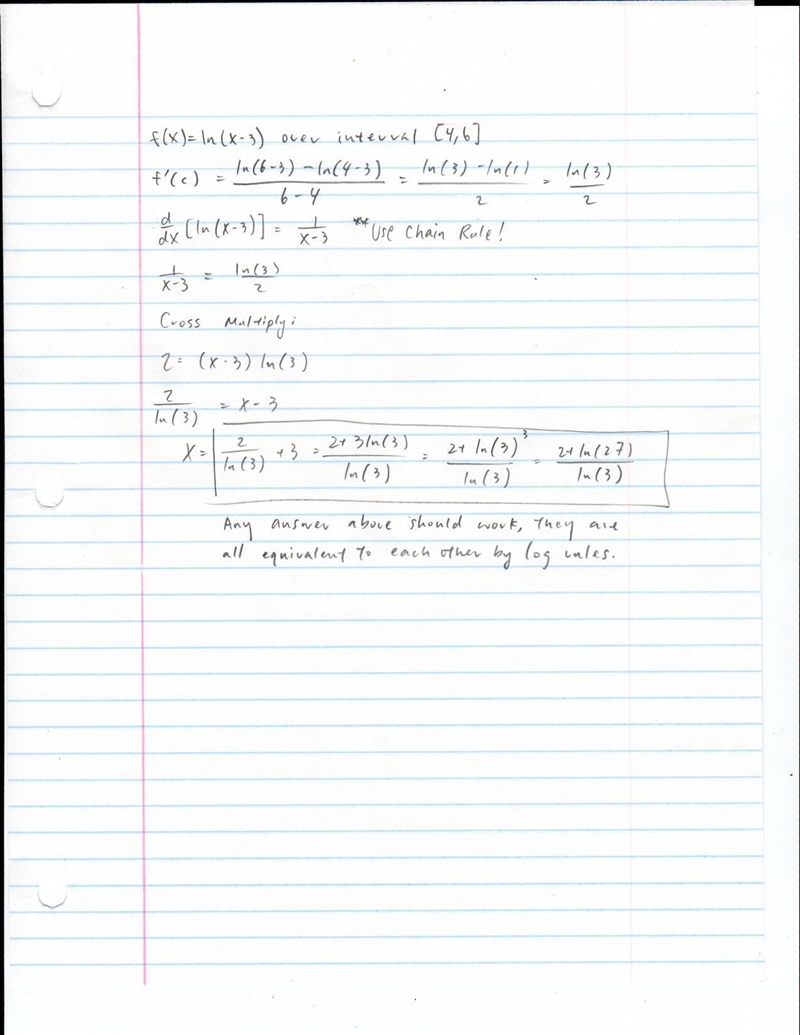 f(x)=ln(x-3) over interval [4,6]
f'(c) = \frac{ln(6-3)-ln(4-3)}{6-4} = \frac{ln(3)-ln(1)}{2} = \frac{ln(3)}{2}
\frac{d}{dx}[ln(x-3)] = \frac{1}{x-3} **Use Chain Rule!
\frac{1}{x-3} = \frac{ln(3)}{2}
Cross Multiply:
2 = (x-3) ln(3)
\frac{2}{ln(3)} = x-3
x = \frac{2}{ln(3)} + 3 = \frac{2+3ln(3)}{ln(3)} = \frac{2+ln(3)^3}{ln(3)} = \frac{2+ln(27)}{ln(3)}
Any answer above should work, they are
all equivalent to each other by log rules.